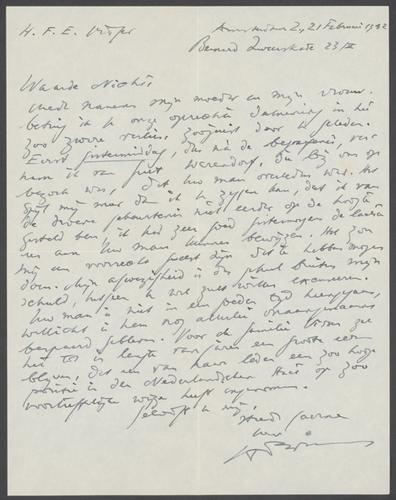 H. F. E. Visser
Amsterdam Z, 21 Februari 1942
Bernard Zweerskade 23/II
Waarde Nicht,
mede namens mijn moeder en mijn vrouw
betuig ik U onze oprechte deelneming in het
zoo zware verlies, zoojuist door U geleden.
Eerst gistermiddag, na de begrafenis, ver
nam ik van Piet die bij ons op
bezoek was, dat Uw man overleden was. Het
spijt mij maar dat ik U zeggen kan, dat ik van
de droeve gebeurtenis niet eerder op de hoogte
gesteld ben, ik had zeer goed gistermorgen de laatste
eer aan Uw man kunnen bewijzen. Het zou
mij een voorrecht geweest zijn dit te hebben mogen
doen. Mijn afwezigheid is dus geheel buiten mijn
schuld, U wilt zulks willen excuseeren.
Uw man is niet in een goeden tijd heengegaan,
wellicht is hem nog allerlei onaangenaams
bespaard gebleven. Voor de familie Visser zal
het tot in lengte van jaren een groote eer
blijven, dat een van haar leden een zoo hooge
positie in den Nederlandschen Staat op zoo
voortreffelijke wijze heeft ingenomen.
Geloof mij,
steeds gaarne
Uw